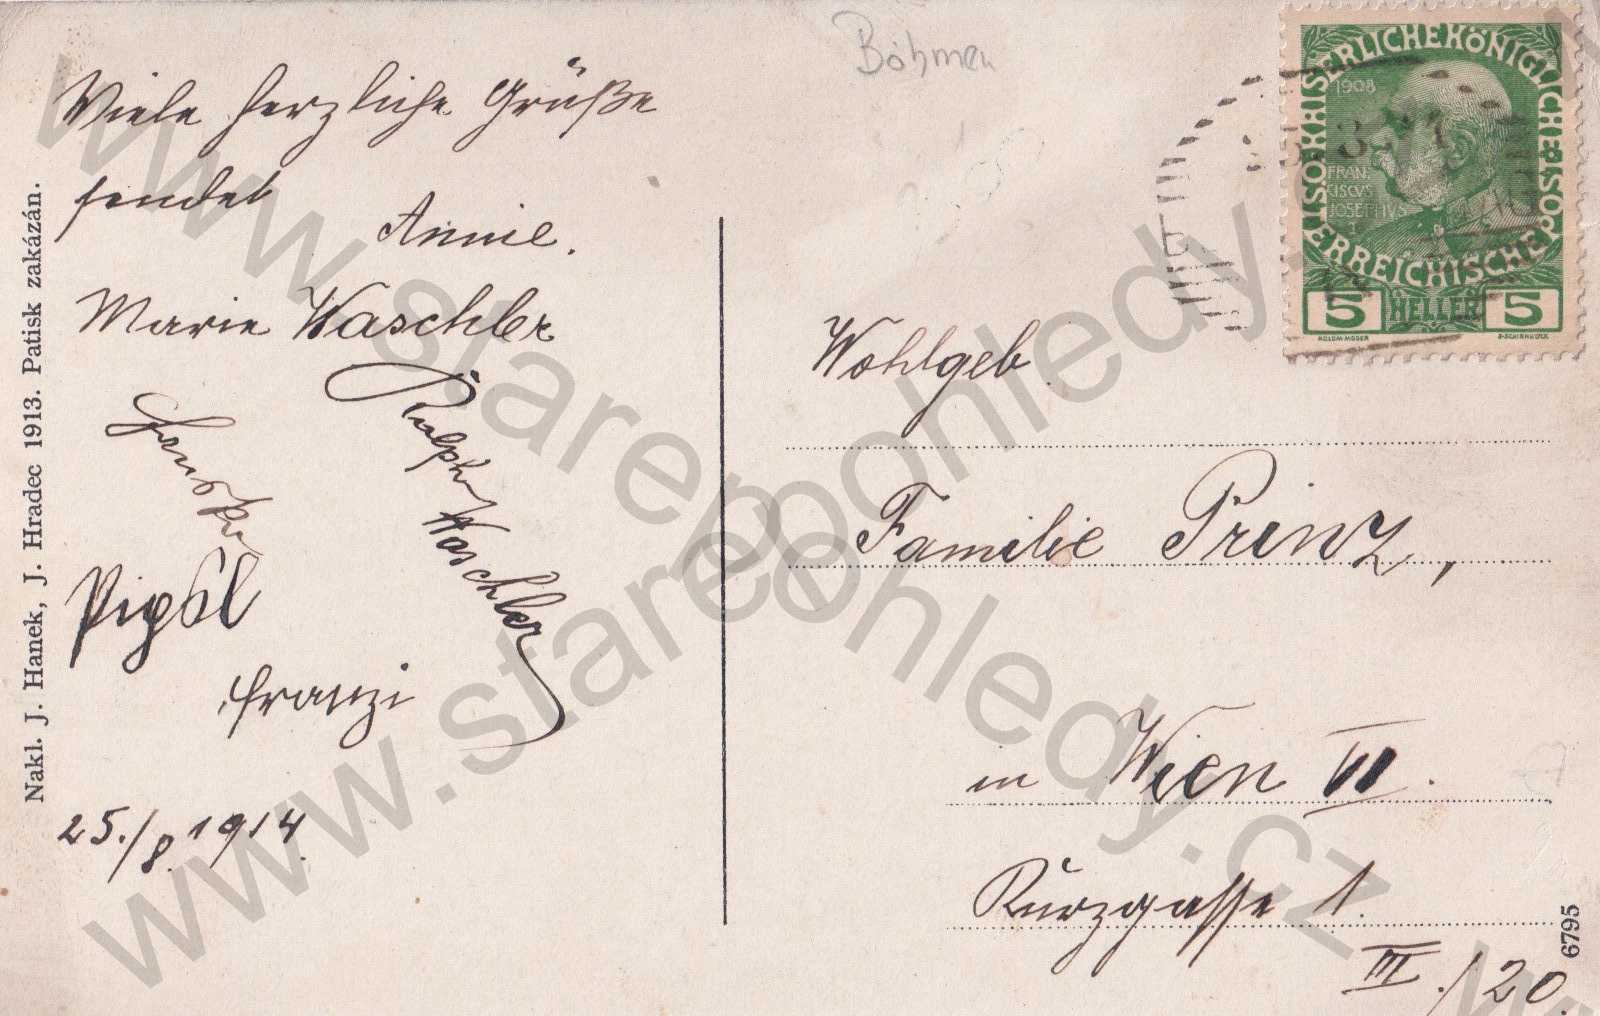 Böhmen
Viele herzliche Grüße
sendet
Annie.
Marie Waschler
Rudolph Waschler
Franzi
25./8. 1914.
Nakl. J. Hanek, J. Hradec 1913. Patisk zakázán.
KAISERLICHE KÖNIGLICHE
ÖSTERREICHISCHE POST
1908
FRAN
CISCVS
JOSEPHVS
I
5 HELLER 5
KOLOM. MOSER
F. SCHIRNBÖCK
Wohlgeb
Familie Prinz,
in Wien VII.
Kurzgasse 1.
III./20.
6795
www.starepohledy.cz
www.starepohledy.cz